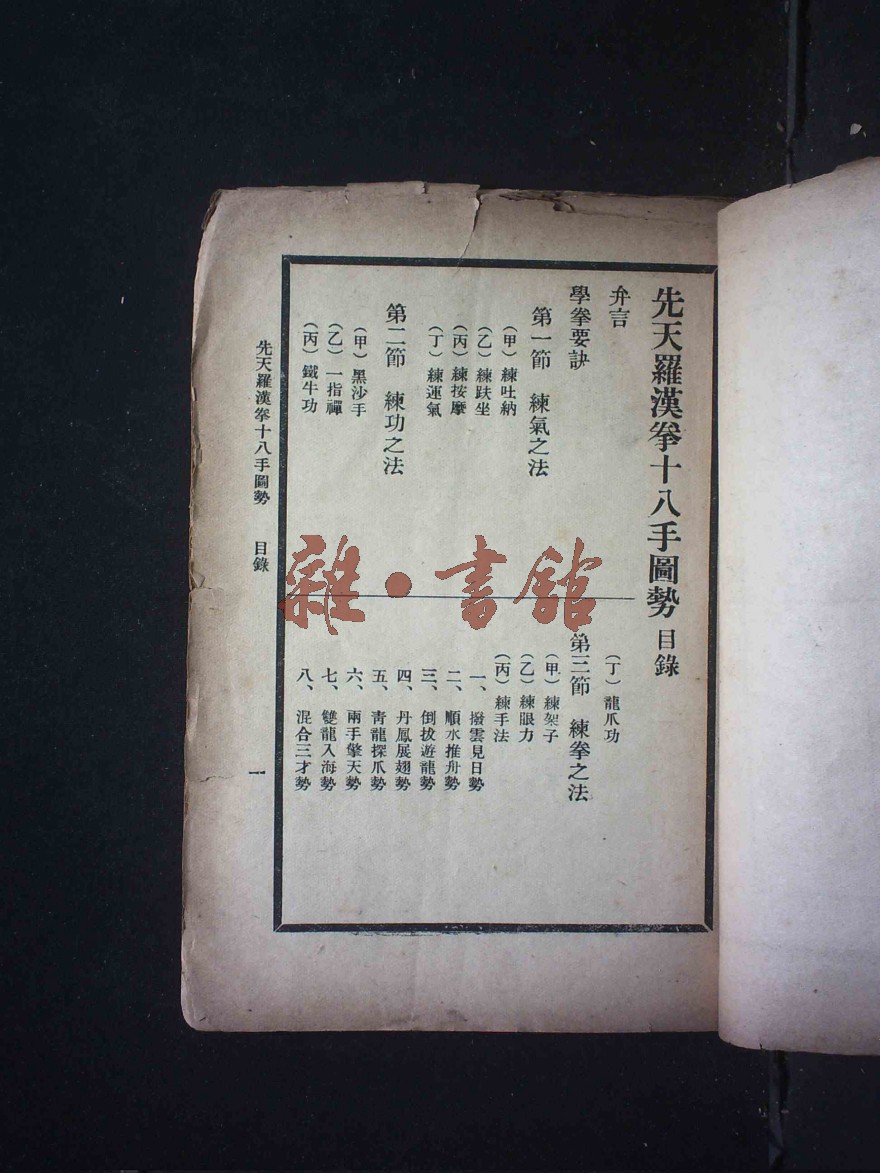 先天羅漢拳十八手圖勢 目錄
弁言
學拳要訣
第一節 練氣之法
(甲)練吐納
(乙)練趺坐
(丙)練按摩
(丁)練運氣
第二節 練功之法
(甲)黑沙手
(乙)一指禪
(丙)鐵牛功
(丁)龍爪功
第三節 練拳之法
(甲)練架子
(乙)練眼力
(丙)練手法
一、撥雲見日勢
二、順水推舟勢
三、倒拔遊龍勢
四、丹鳳展翅勢
五、靑龍探爪勢
六、兩手擎天勢
七、雙龍入海勢
八、混合三才勢
先天羅漢拳十八手圖勢 目錄 一
雜·書館